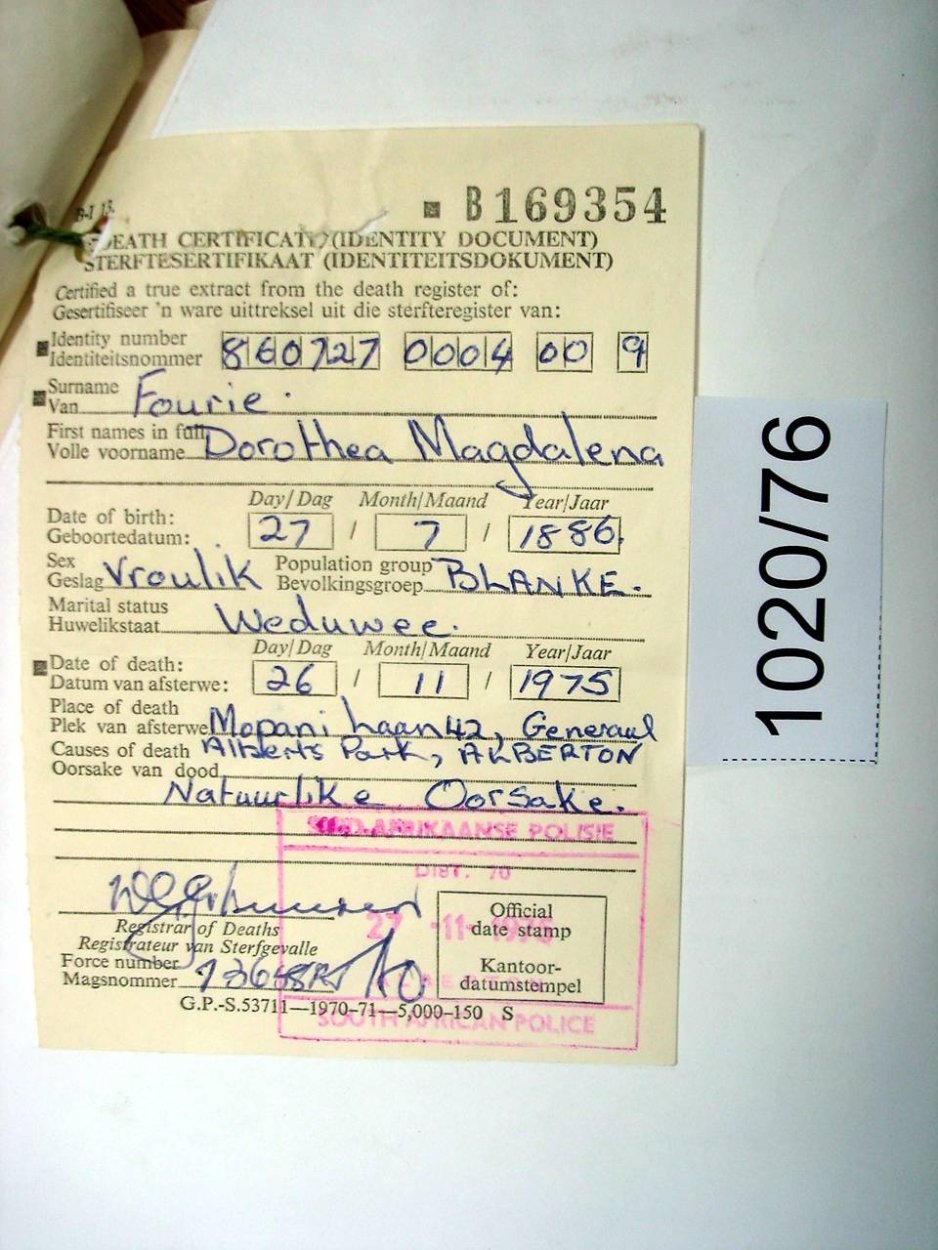 B-I 13.
B169354
DEATH CERTIFICATE (IDENTITY DOCUMENT)
STERFTESERTIFIKAAT (IDENTITEITSDOKUMENT)
Certified a true extract from the death register of:
Gesertifiseer 'n ware uittreksel uit die sterfteregister van:
Identity number
Identiteitsnommer 860727 0004 00 9
Surname
Van Fourie.
First names in full
Volle voorname Dorothea Magdalena
Day/Dag Month/Maand Year/Jaar
Date of birth:
Geboortedatum: 27 / 7 / 1886
Sex
Geslag Vroulik
Population group
Bevolkingsgroep BLANKE.
Marital status
Huwelikstaat Weduwee.
Day/Dag Month/Maand Year/Jaar
Date of death:
Datum van afsterwe: 26 / 11 / 1975
Place of death
Plek van afsterwe Mopani Laan 42, Generaal
Causes of death Alberts Park, ALBERTON
Oorsake van dood
Natuurlike Oorsake.
SUID-AFRIKAANSE POLISIE
DIST. 70
27 -11- 1975
SOUTH AFRICAN POLICE
Registrar of Deaths
Registrateur van Sterfgevalle
Force number
Magsnommer
Official
date stamp
Kantoor-
datumstempel
G.P.-S.53711—1970-71—5,000-150 S
1020/76